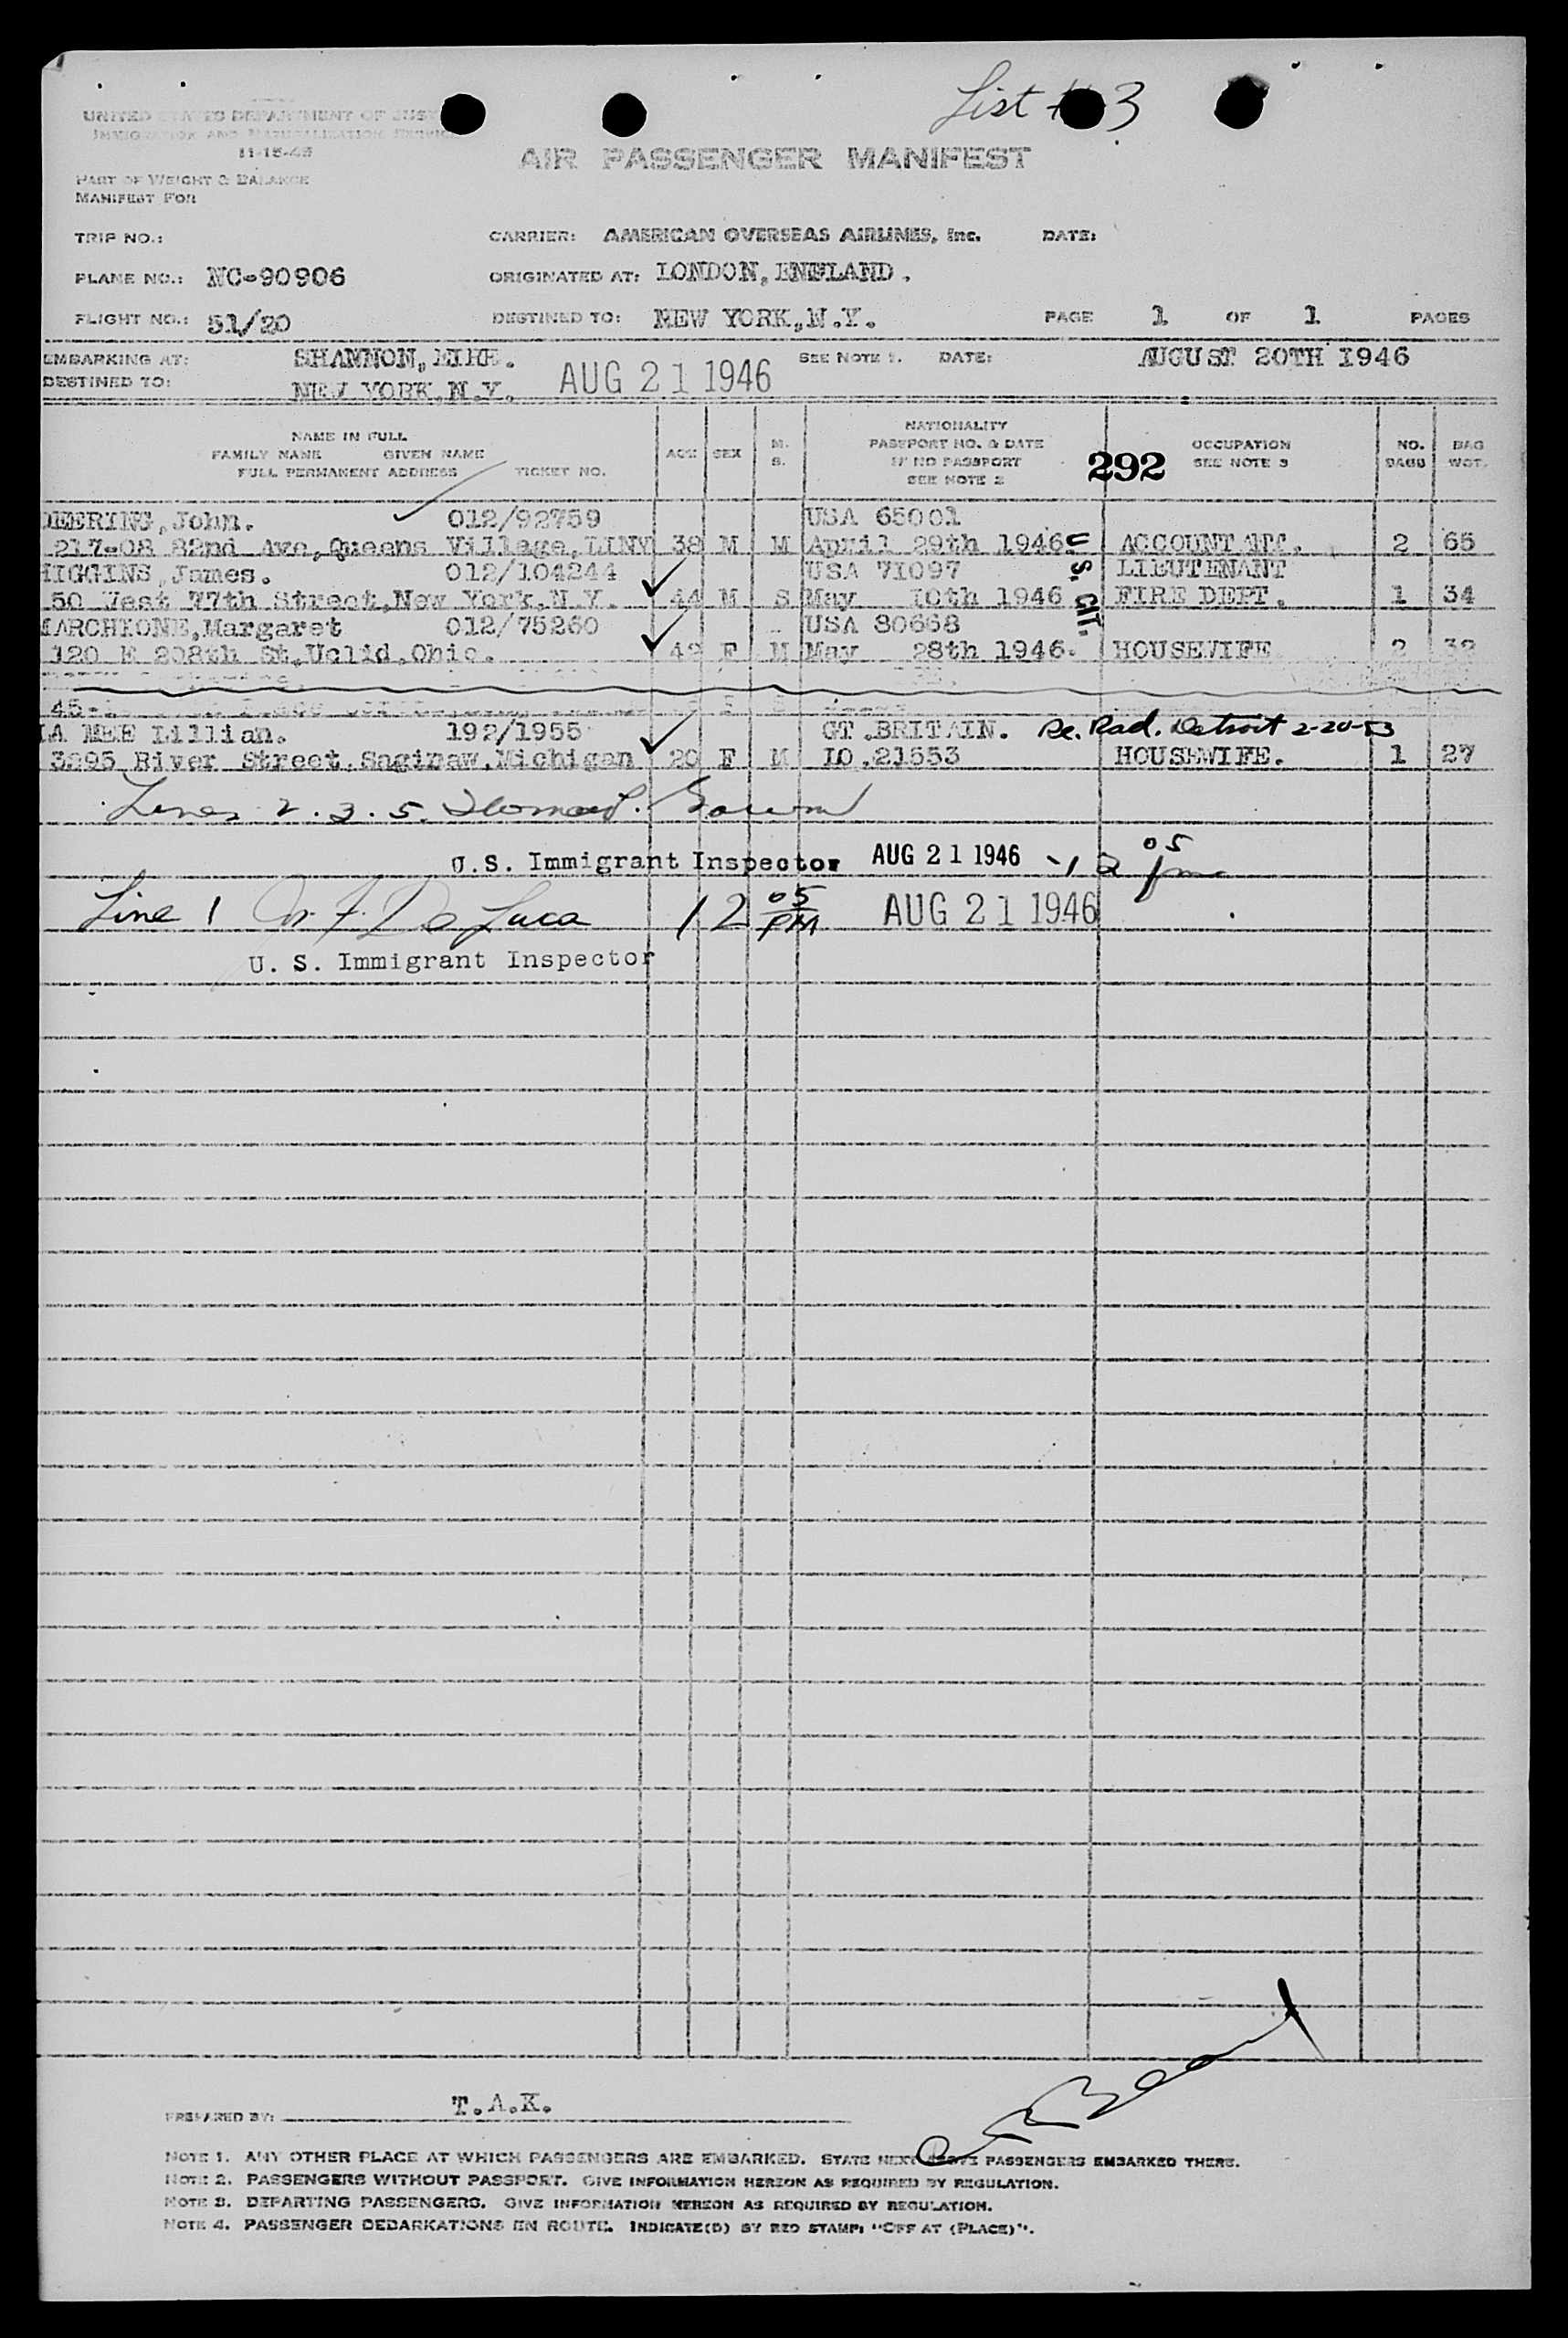 List # 3
UNITED STATES DEPARTMENT OF JUS
IMMIGRATION AND NATURALIZATION SERVICE
11-15-45
AIR PASSENGER MANIFEST
PART OF WEIGHT & BALANCE
MANIFEST FOR
TRIP NO.: CARRIER: AMERICAN OVERSEAS AIRLINES, Inc. DATE:
PLANE NO.: NC-90906 ORIGINATED AT: LONDON, ENGLAND.
FLIGHT NO.: 51/20 DESTINED TO: NEW YORK, N.Y. PAGE 1 OF 1 PAGES
EMBARKING AT: SHANNON, EIRE. SEE NOTE 1. DATE: AUGUST 20TH 1946
DESTINED TO: NEW YORK, N.Y. AUG 21 1946
NAME IN FULL
FAMILY NAME GIVEN NAME
FULL PERMANENT ADDRESS TICKET NO.
AGE SEX M. S.
NATIONALITY
PASSPORT NO. & DATE
IF NO PASSPORT
SEE NOTE 2
292
OCCUPATION
SEE NOTE 3
NO. BAGS
BAG WGT.
DEERING, John. 012/92759 USA 65001
217-08 82nd Ave, Queens Village, LINY 38 M M April 29th 1946 ACCOUNTANT. 2 65
HIGGINS, James. 012/104244 USA 71097 LIEUTENANT
50 West 77th Street, New York, N.Y. 44 M S May 10th 1946 FIRE DEPT. 1 34
U.S. CIT.
MARCHIONE, Margaret 012/75260 USA 80668
120 E 208th St, Uclid, Ohio. 42 F M May 28th 1946. HOUSEWIFE 2 32
45-
LA MEE Lillian. 192/1955 GT. BRITAIN. Re. Rad. Detroit 2-20-53
3295 River Street, Saginaw, Michigan 20 F M IO. 21553 HOUSEWIFE. 1 27
Lines 2. 3. 5.
U.S. Immigrant Inspector AUG 21 1946 12 05 pm
Line 1 De Luca 12 05 PM AUG 21 1946
U. S. Immigrant Inspector
PREPARED BY: T.A.K.
NOTE 1. ANY OTHER PLACE AT WHICH PASSENGERS ARE EMBARKED. STATE NEXT PASSENGERS EMBARKED THERE.
NOTE 2. PASSENGERS WITHOUT PASSPORT. GIVE INFORMATION HEREON AS REQUIRED BY REGULATION.
NOTE 3. DEPARTING PASSENGERS. GIVE INFORMATION HEREON AS REQUIRED BY REGULATION.
NOTE 4. PASSENGER DEBARKATIONS EN ROUTE. INDICATE(D) BY RED STAMP: "OFF AT (PLACE)".